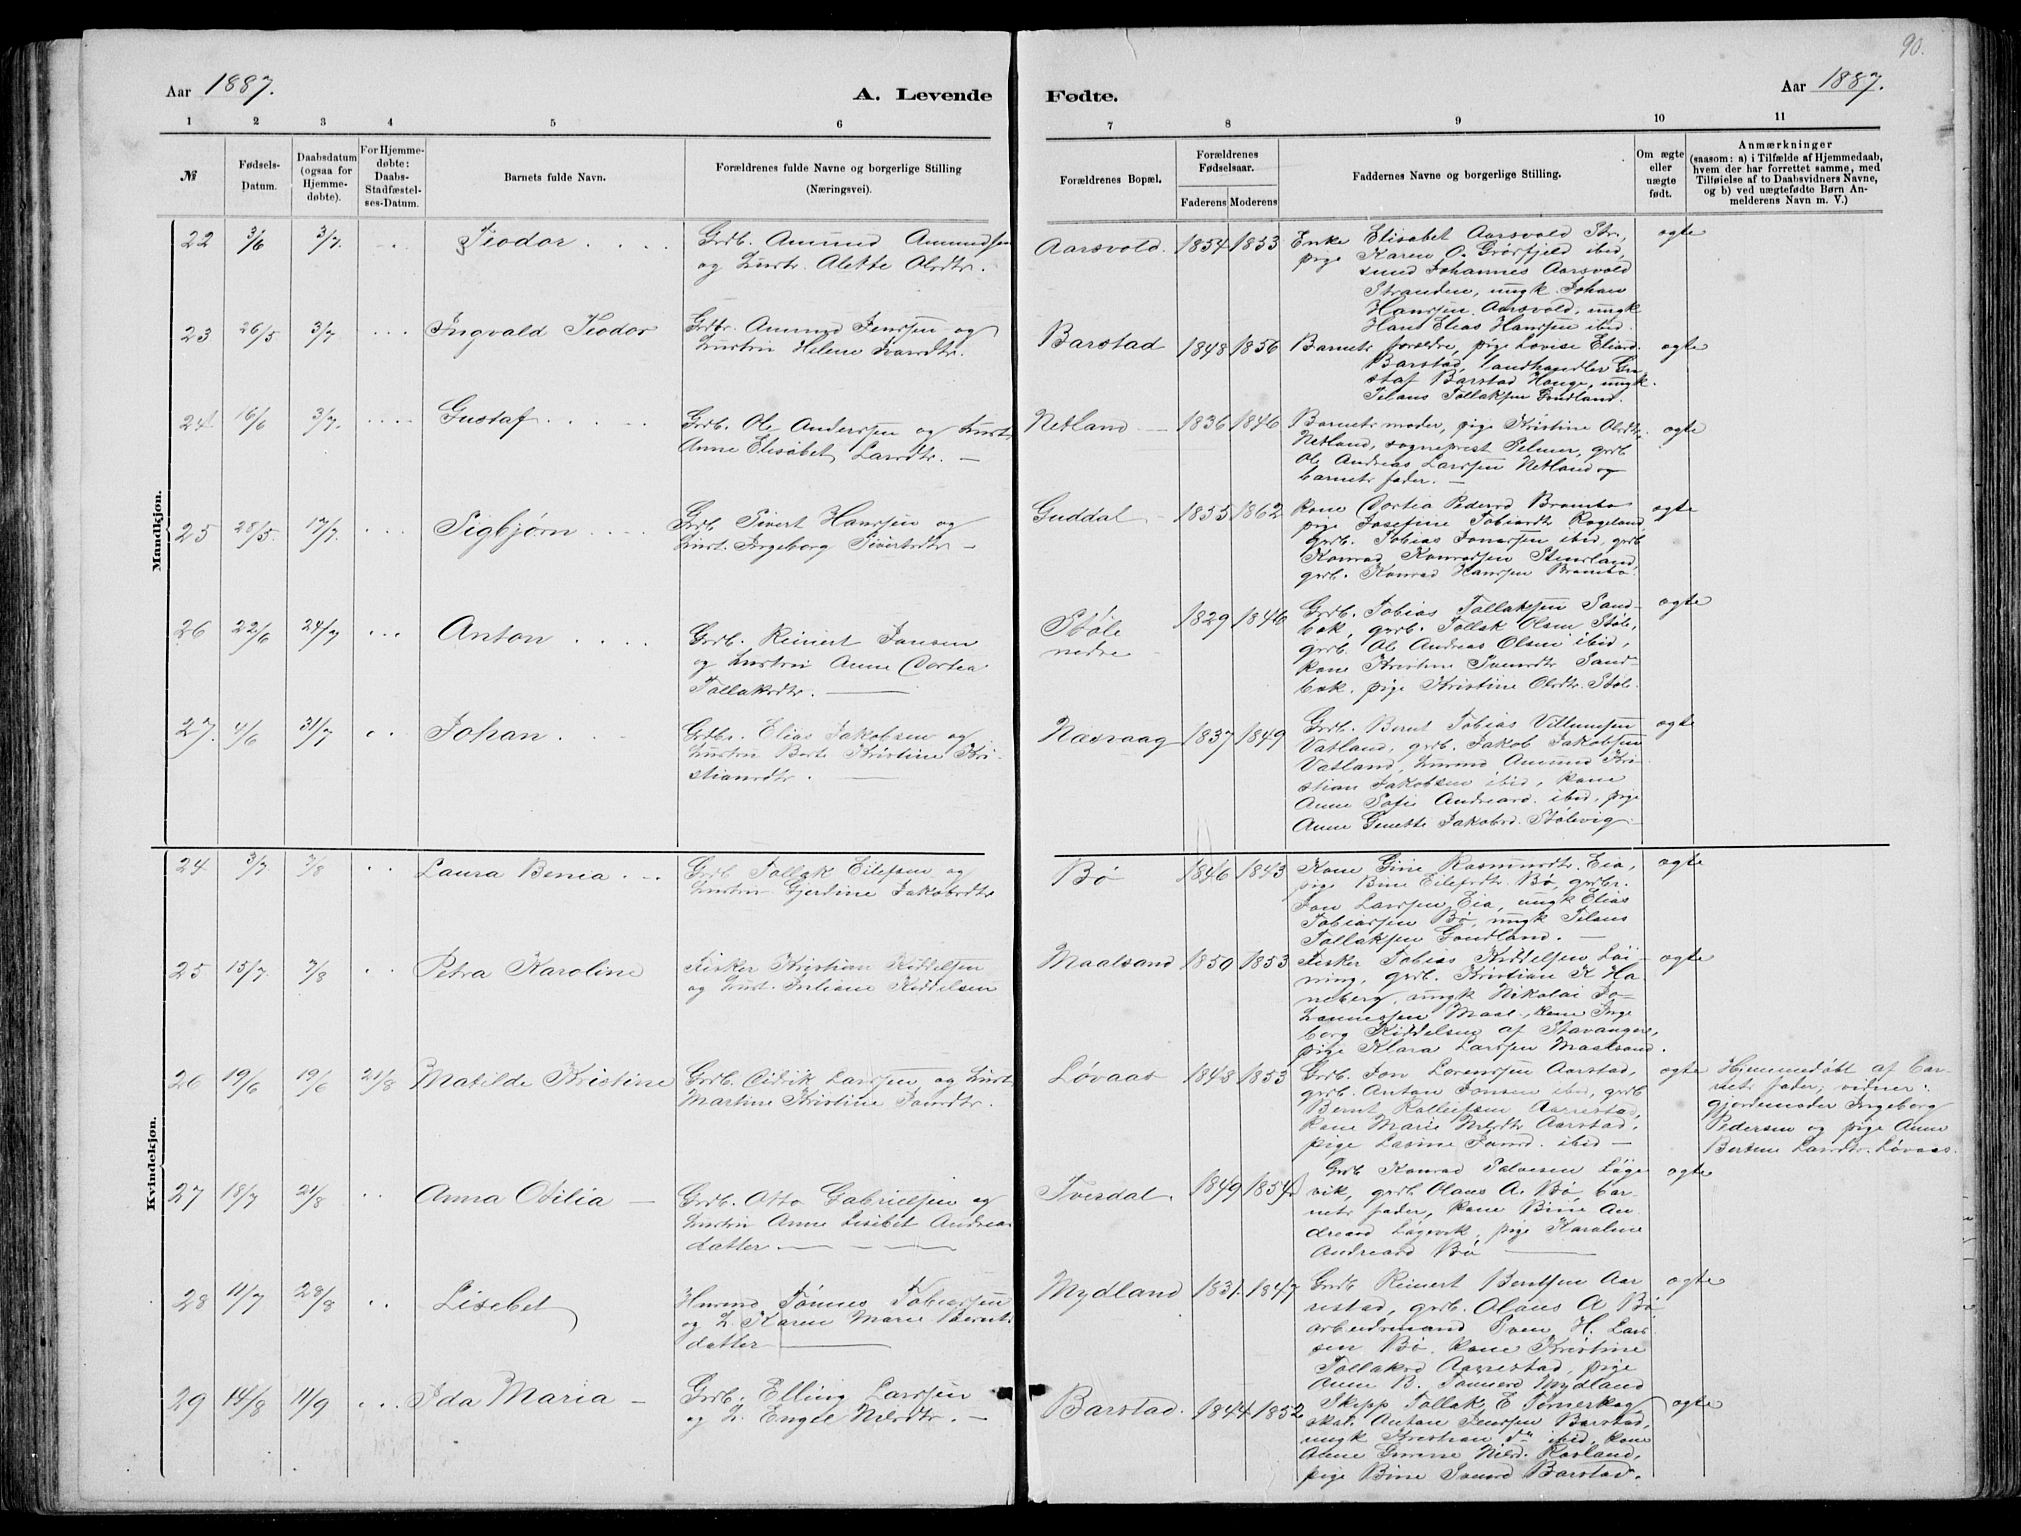 90.
Aar 1887.
A. Levende Fødte.
Aar 1887.
1 2 3 4 5 6 7 8 9 10 11
№
Fødsels-
Datum.
Daabsdatum
(ogsaa for
Hjemme-
døbte).
For Hjemme-
døbte:
Daabs-
Stadfæstel-
ses-Datum.
Barnets fulde Navn.
Forældrenes fulde Navne og borgerlige Stilling
(Næringsvei).
Forældrenes Bopæl.
Forældrenes
Fødselsaar.
Faderens Moderens
Faddernes Navne og borgerlige Stilling.
Om ægte
eller
uægte
født.
Anmærkninger
(saasom: a) i Tilfælde af Hjemmedaab,
hvem der har forrettet samme, med
Tilføielse af to Daabsvidners Navne,
og b) ved uægtefødte Børn An-
melderens Navn m. V.)
Mandkjøn.
22 3/6 3/7. Teodor
Grdb. Amund Amundsen
og hustr. Alette Olsdtr.
Aarsvold. 1854 1853
Enke Elisabet Aarsvold Str.,
pige Karen O. Grøsfjeld ibid,
smed Johannes Aarsvold
Stranden, ungk. Johan
Hanssen Aarsvold, ungk
Hans Elias Hanssen ibid.
ægte
23 26/5 3/7 Ingvald Teodor
Grdbr. Amund Jenssen og
hustru Helene Ivarsdtr.
Barstad 1848 1856
Barnets forældre, pige Lovise Eliasd.
Barstad, landhandler Gu-
staf Barstad Hauge, ungk.
Tilans Tollaksen Gondland.
ægte
24 16/6 3/7. Gustaf
Grdb. Ole Anderssen og hustr
Anne Elisabet Larsdtr.
Netland 1836 1846
Barnets moder, pige Kristine Olsdtr.
Netland, sogneprest Selmer, grdb
Ole Andreas Larssen Netland og
barnets fader.
ægte
25 28/5. 17/7. Sigbjørn
Grdb Sivert Hanssen og
hust. Ingeborg Sivertsdtr
Guddal 1855 1862
kone Cortia Pedersd Brambo
pige Josefine Tobiasdtr Rogeland
grdb. Tobias Jonassen ibid, grdb
Konrad Konradsen Stensland,
grdb. Konrad Hanssen Brambo.
ægte
26 22/6 24/7 Anton
Grdb. Reinert Jansen
og hustru Anne Cortea
Tollaksdtr.
Støle
nedre
1829 1846
Grdb. Tobias Tollaksen Sand-
bæk, grdb. Tollak Olsen Støle,
grdb. Ole Andreas Olsen ibid,
kone Kristine Svensdtr Sand-
bæk. pige Kristine Olsdtr. Støl.
ægte
27. 4/6 31/7 Johan
Grdbr. Elias Jakobsen og
hustru Berte Kristine Kri-
stiansdtr.
Næsvaag 1837 1849
Grdb. Bernt Tobias Villumsen
Vatland, grdb. Jakob Jakobsen
Vatland, husmd Amund Kri-
stian Jakobsen ibid, kone
Anne Sofie Andreasd. ibid, pige
Anne Genette Jakobsd. Stølevig.
ægte
Kvindekjøn.
24 3/7 7/8 Laura Benia
Grdb Tollak Eilefsen og
hustru Gjertine Jakobsdtr
Bø 1846 1843
Kone Gine Rasmusdtr. Eia,
pige Bine Eilefsdtr. Bø, grdbr.
Jon Larssen Eia, ungk Elias
Tobiassen Bø, ungk Tilans
Tollaksen Gondland.
ægte
25 15/7 7/8 Petra Karoline
Fisker Kristian Kiddelsen
og hust. Juliane Kiddelsen
Maalsand 1850 1853
Fisker Tobias Kiddelsen Løi-
ning, grdb. Kristian K Ha-
neberg, ungk Nikolai Jo-
hannessen Maal, kone Inge
borg Kiddelsen af Stavanger,
pige Klara Larssen Maalsand.
ægte
26 19/6 19/6 21/8 Matilde Kristine
Grdb. Didrik Larssen og hust
Martine Kristine Jansdtr.
Løvaas 1848 1853
Grdb. Jon Lorenssen Aarstad,
grdb. Anton Jonsen ibid, grdb
Bernt Rolleifsen Aarrestad,
kone Marie Nilsdtr Aarstad,
pige Lasine Jansd. ibid
ægte
Hjemmedøbt af bar-
nets fader; vidner:
gjordemoder Ingeborg
Pedersen og pige Anne
Bertine Larsdtr. Løvaas.
27 18/7 21/8 Anna Otilia
Grdb. Otto Gabrielsen og
hustru Anne Lisebet Andreas
datter
Tverdal. 1849 1854
Grdb Konrad Salvesen Løge
vik, grdb Olaus A. Bø, bar-
nets fader, kone Bine An
dreasd Løgevik, pige Karoline
Andreasd Bø
ægte
28 11/7 28/8 Lisebet
Husmd Tønnes Tobiassen
og h. Karen Marie Bernts
datter
Mydland 1831. 1847
Grdb Reinert Berntsen Aar
restad, grdb. Olaus A Bø
arbeidsmand Sven H. Lars
sen Bø, kone Kristine
Tollaksd Aarrestad, pige
Anne B. Tønnesd Mydland
ægte
29 14/8 11/9 Ida Maria
Grdb. Elling Larssen
og h. Engel Nilsdtr.
Barstad. 1844. 1852
Skipp Tollak E Tønserkog
mat. Anton Jenssen Barstad,
ungk Kristian do ibid, kone
Anne Nilsd. Rosland,
pige Bine Svensd Barstad.
ægte